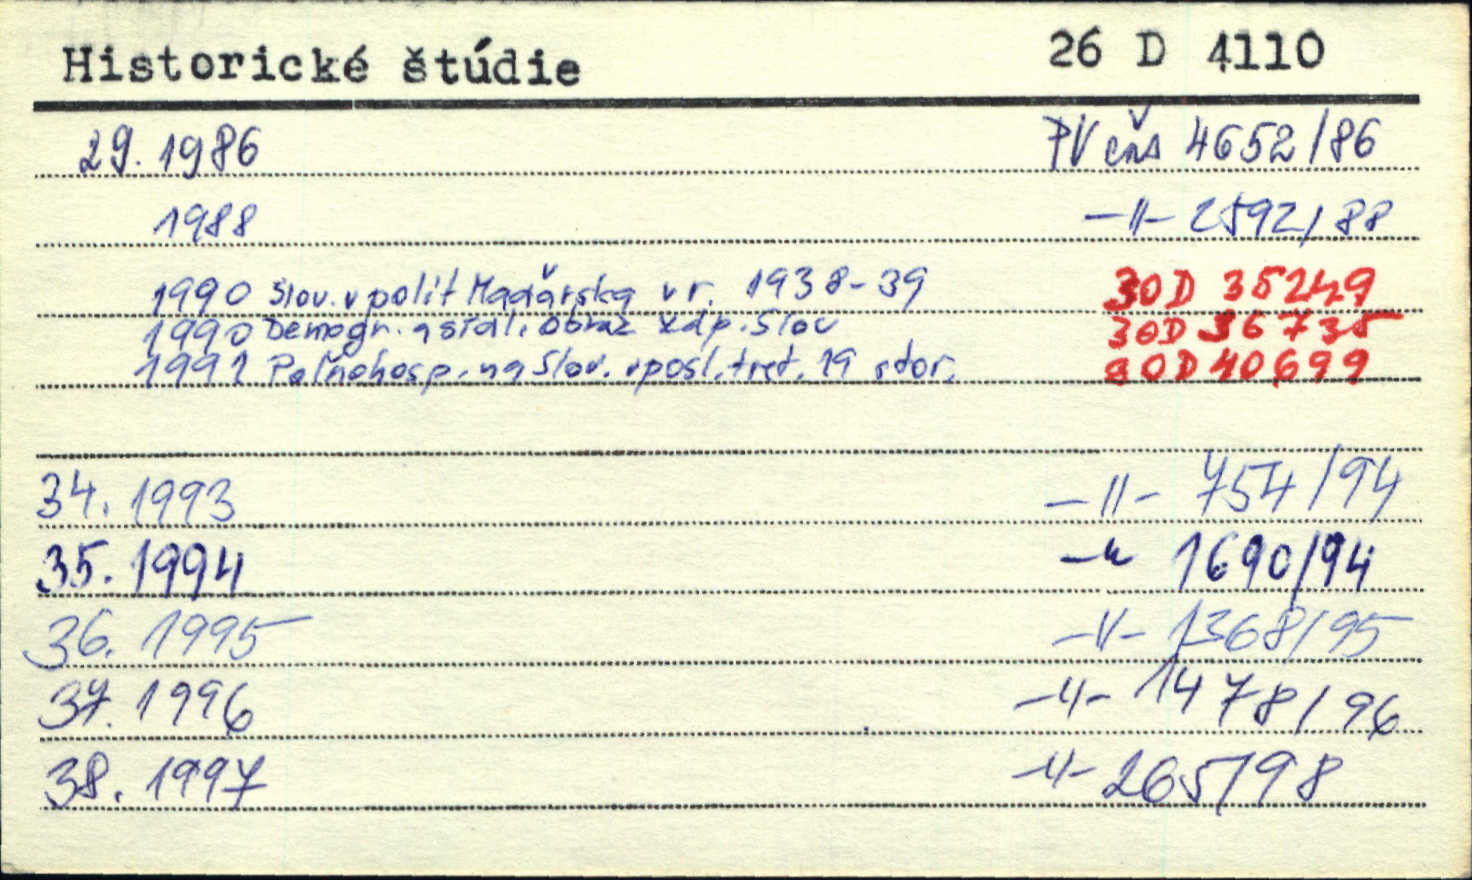 Historické štúdie 26 D 4110
29. 1986 PV čňs 4652/86
1988 -||- 2592/88
1990 Slov. v polit Maďarska v r. 1938-39 30D 35249
1990 Demogr. a sídl. obraz záp. Slov 30D 36735
1991 Poľnohosp. na Slov. v posl. tret. 19 stor. 30D 40699
34. 1993 -||- 754/94
35. 1994 -"- 1690/94
36. 1995 -||- 1368/95
37. 1996 -||- 1478/96
38. 1997 -||- 265/98